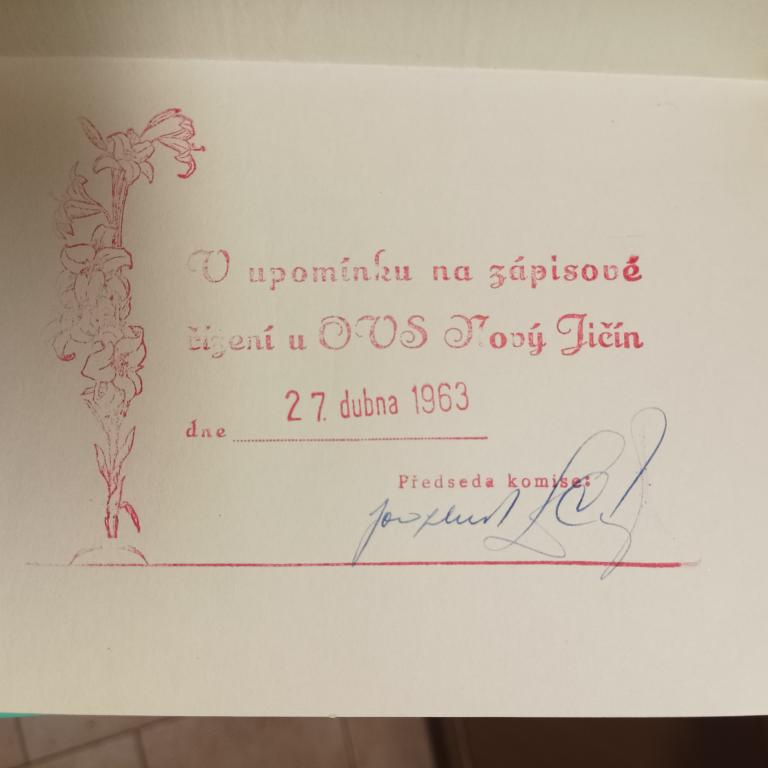 V upomínku na zápisové
řízení u OVS Nový Jičín
27. dubna 1963
dne
Předseda komise: